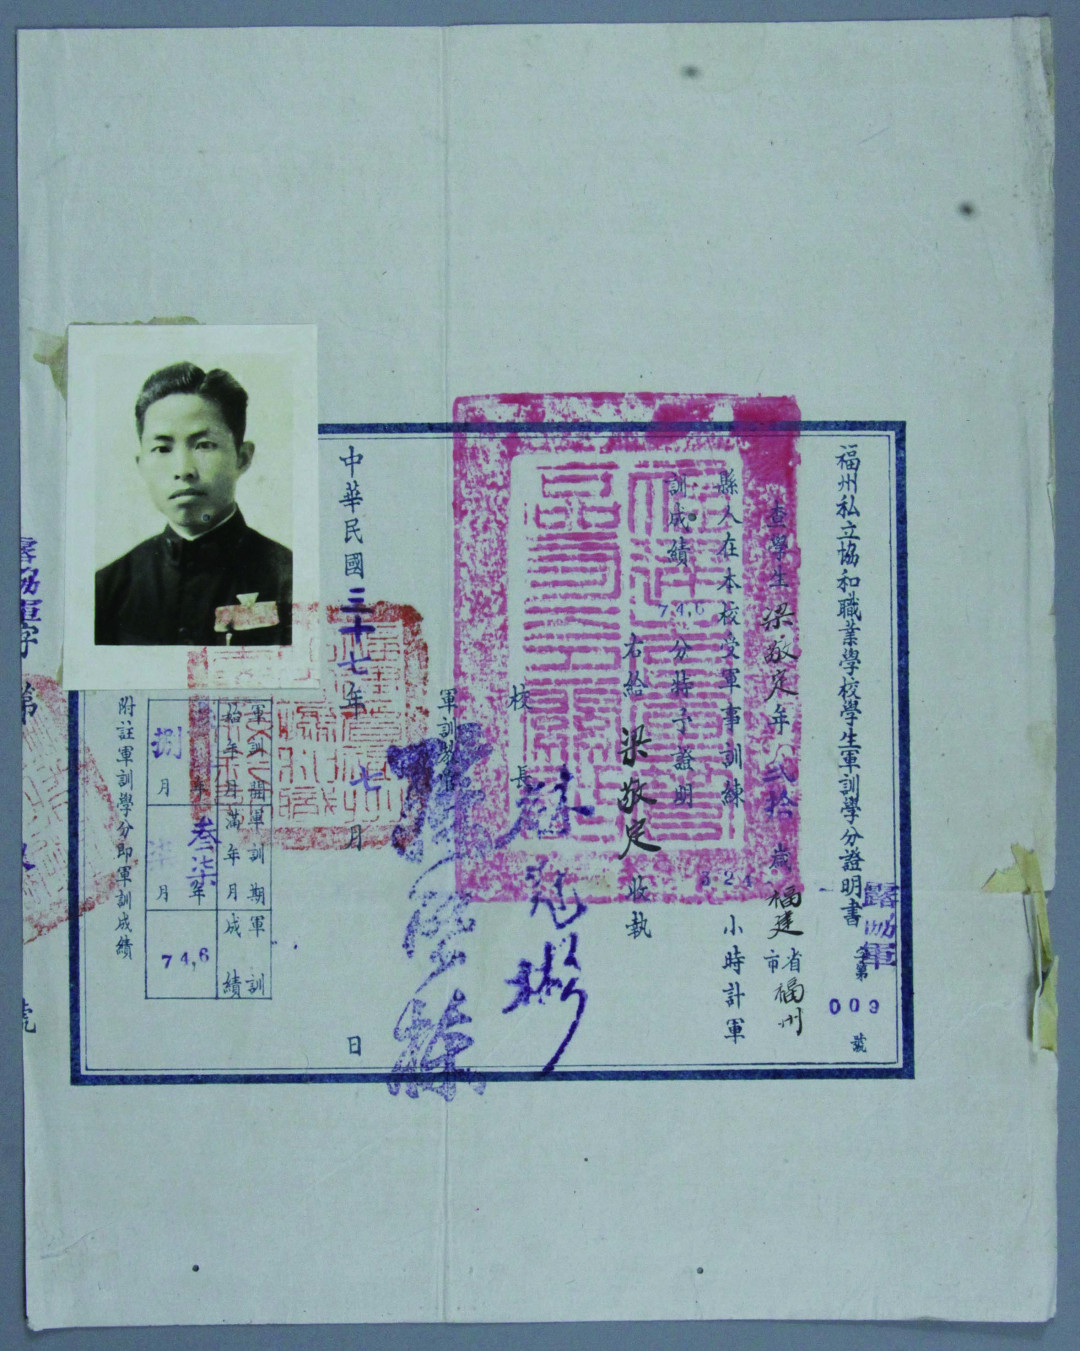 福州私立協和職業學校學生軍訓學分證明書
露協軍字第009號
查學生梁敬定年貳拾歲福建省福州市
縣人在本校受軍事訓練324小時計軍
訓成績74,6分特予證明
右給梁敬定收執
校長
軍訓教官
中華民國三十七年七月日
軍訓開始年月
軍訓期滿年月
軍訓成績
年捌月
叁柒年柒月
74,6
附註軍訓學分即軍訓成績
露協軍字第號